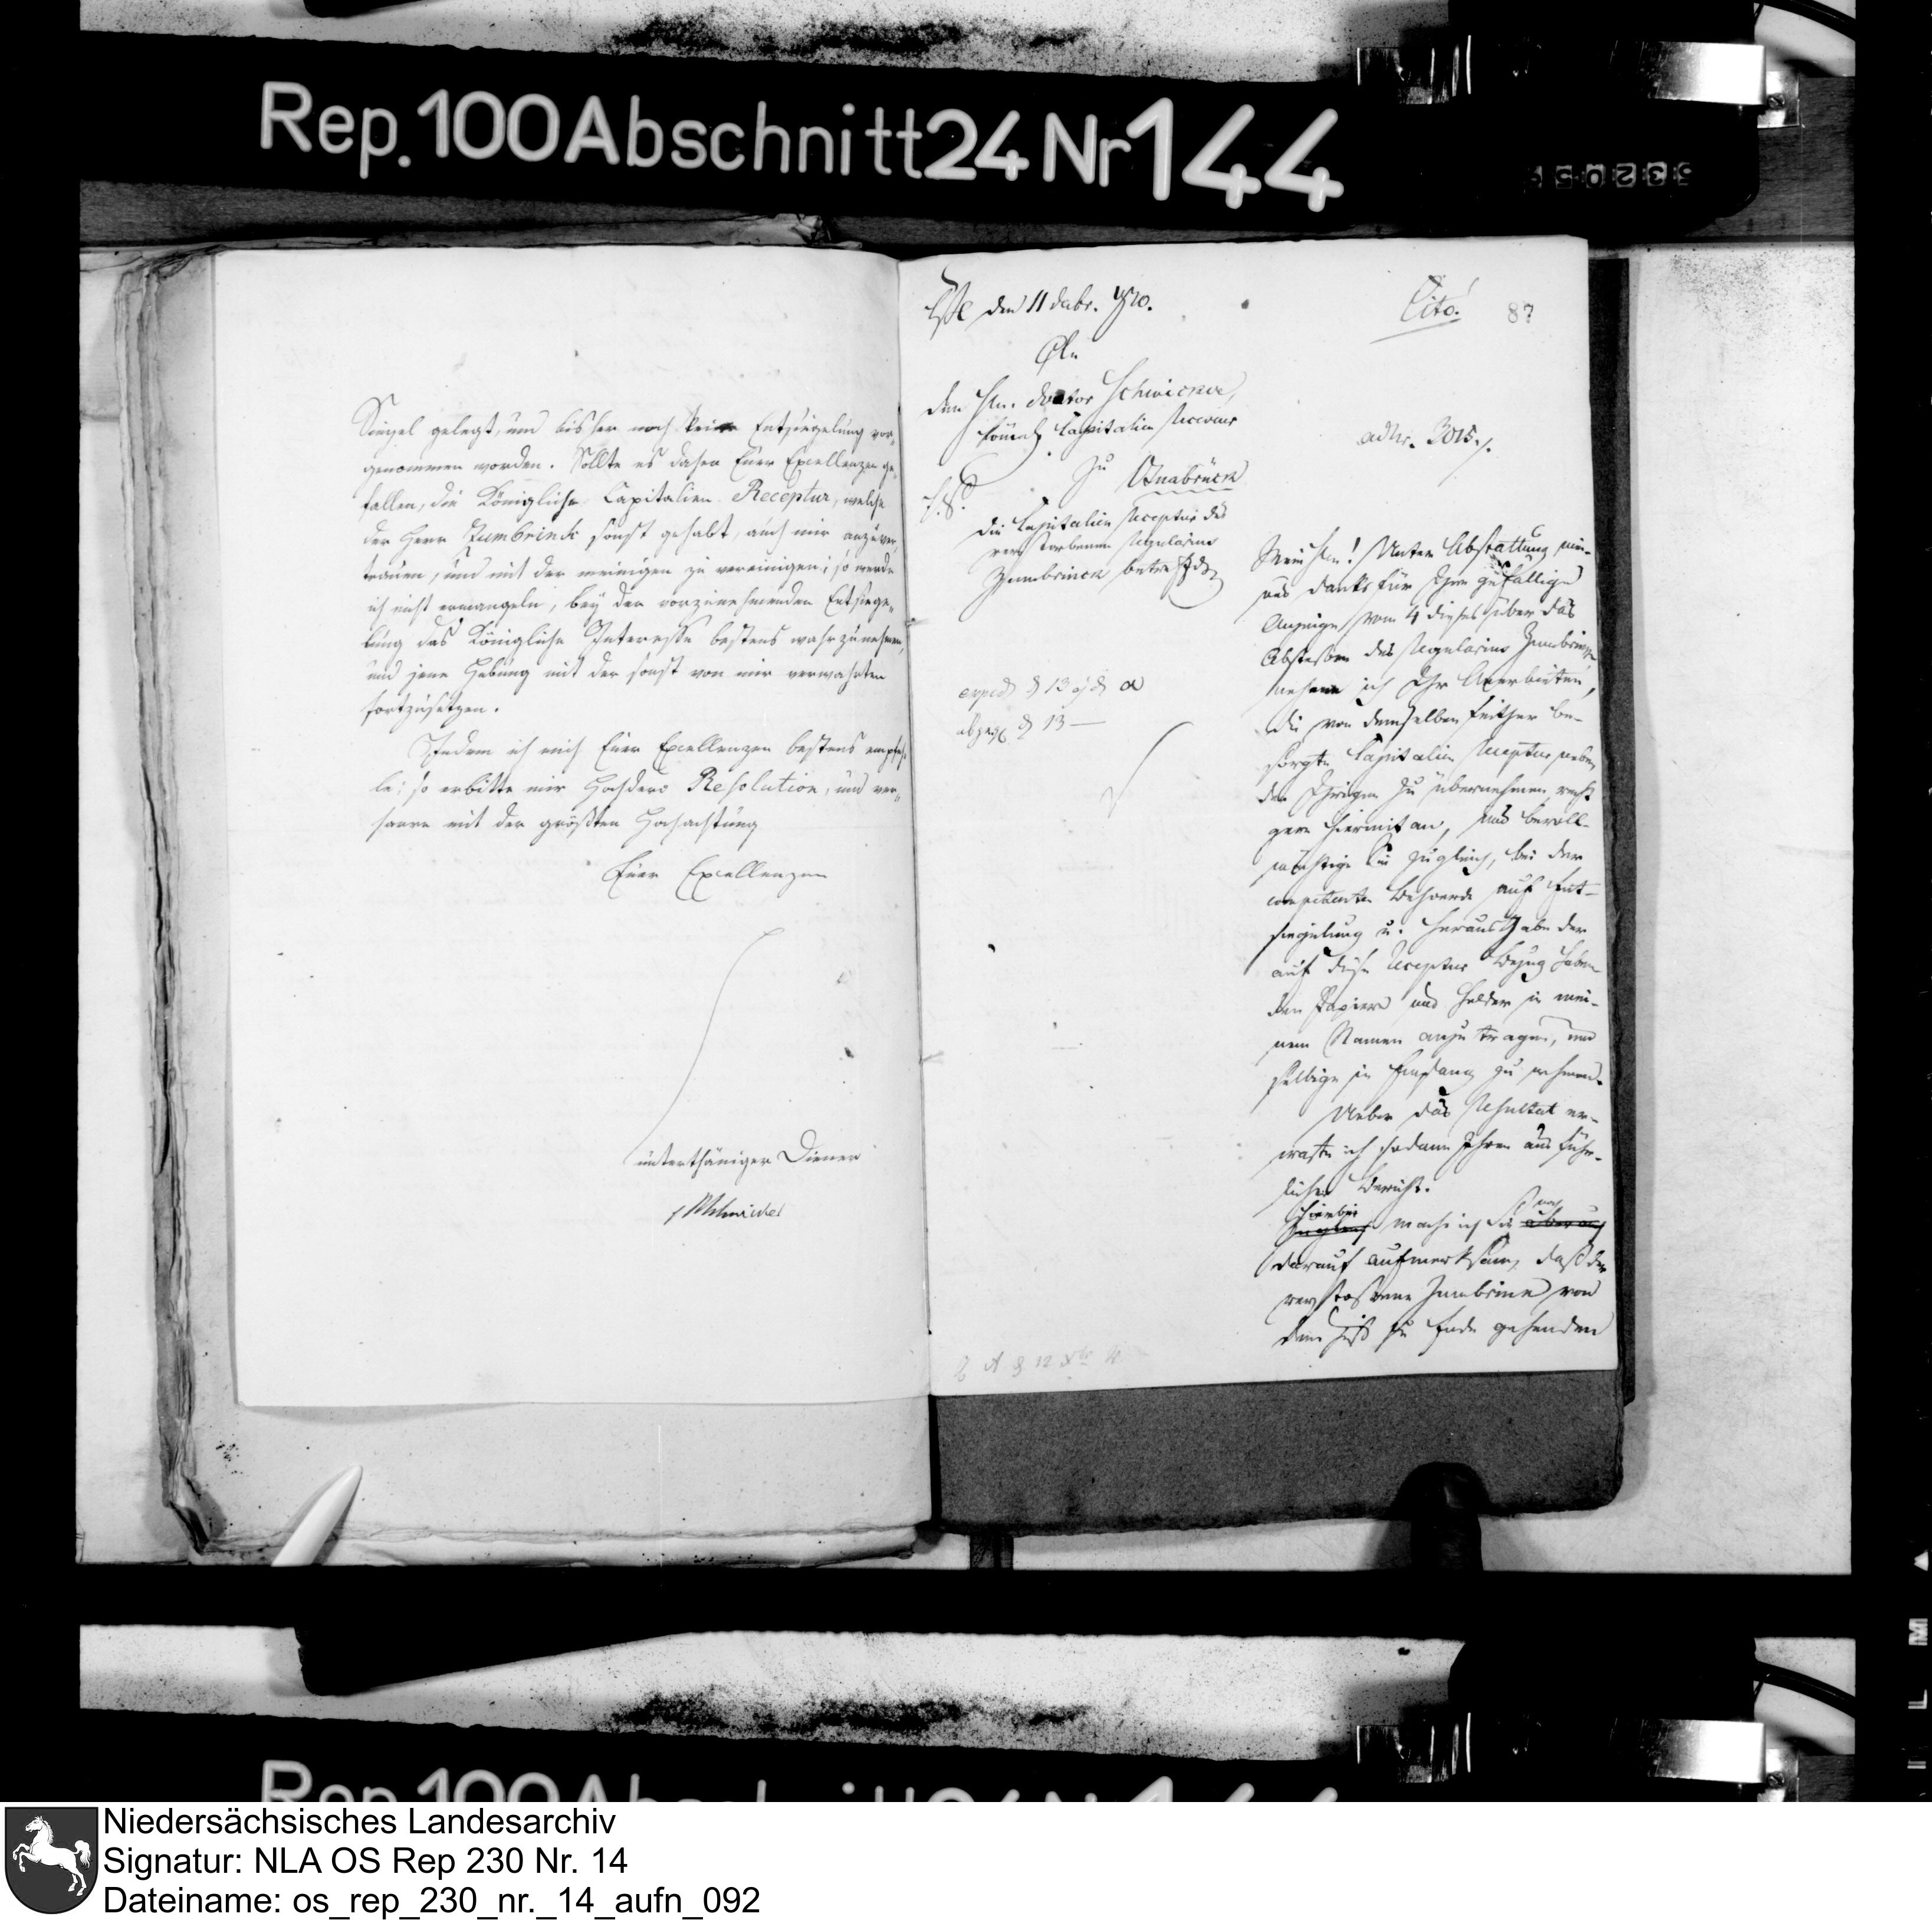 Rep. 100 Abschnitt 24 Nr 144
Siegel gelegt, und bis her noch keine Entsiegelung vor„
genommen worden. Sollte es daher Euer Excellenzen ge„
fallen, die Königliche Capitalien Receptur, welche
der Herr Zumbrinck sonst gehabt, auch mir anzuver„
trauen, und mit der meinigen zu vereinigen; so werde
ich nicht ermangeln, bey der vorzunehmenden Entsiege„
lung das Königliche Interesse bestens wahrzunehmen,
und jene Hebung mit der sonst von mir verwahrten
fortzusetzen.
Indem ich mich Euer Excellenzen bestens empfeh„
le; so erbitte mir Hochdero Resolution, und ver„
harre mit der größten Hochachtung
Euer Excellenzen
unterthäniger Diener
den 11 Debr. 1810.
Cito!
87
An
den Hn. Doctor Schwicker,
Königl. Capitalien Receveur
zu Osnabrück
ad Nr. 3015.
Die Capitalien Receptur des
verstorbenen
Zumbrinck betreffd.
Mein Hr.! Unter Abstattung mei-
nes Danks für Ihre gefällige
Anzeige vom 4 dieses über das
Absterben des Zumbrinck
nehme ich Ihr Anerbieten,
die von demselben seither be-
sorgte Capitalien Receptur neben
der Ihrigen zu übernehmen recht
gern hiermit an, und bevoll-
mächtige Sie zugleich, bei der
competenten Behoerde auf Ent-
siegelung u. Herausgabe der
auf diese Receptur Bezug haben-
den Papiere und Gelder in mei-
nem Namen anzutragen, und
selbige in Empfang zu nehmen.
Ueber das Resultat er-
warte ich sodann Ihren ausführ-
lichen Bericht.
Hierbei mache ich Sie noch
darauf aufmerksam, daß der
verstorbene Zumbrinck von
dem jetzt zu Ende gehenden
Niedersächsisches Landesarchiv
Signatur: NLA OS Rep 230 Nr. 14
Dateiname: os_rep_230_nr._14_aufn_092